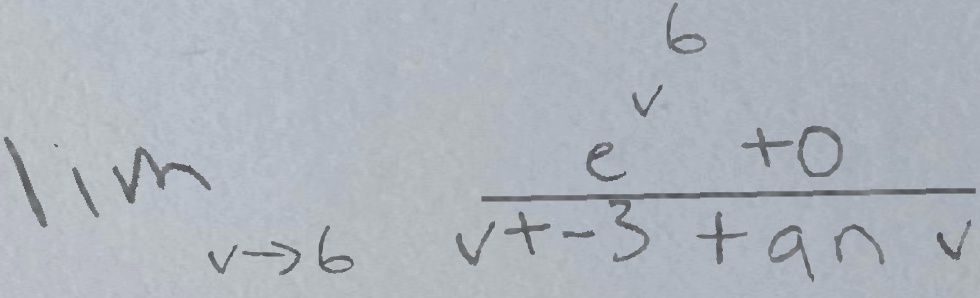 lim v→6 e^v^6 +0 / v+-3 tan v